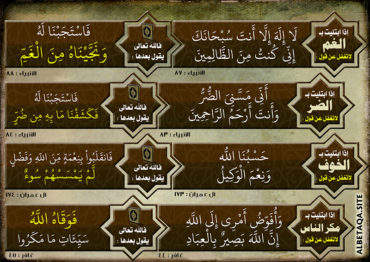 إذا ابتليت بـ
الغم
لاتغفل عن قول
لَا إِلَهَ إِلَّا أَنتَ سُبْحَانَكَ
إِنِّي كُنتُ مِنَ الظَّالِمِينَ
الأنبياء : ٨٧
فالله تعالى
يقول بعدها :
فَاسْتَجَبْنَا لَهُ
وَنَجَّيْنَاهُ مِنَ الْغَمِّ
الأنبياء : ٨٨
إذا ابتليت بـ
الضر
لاتغفل عن قول
أَنِّي مَسَّنِيَ الضُّرُّ
وَأَنتَ أَرْحَمُ الرَّاحِمِينَ
الأنبياء : ٨٣
فالله تعالى
يقول بعدها :
فَاسْتَجَبْنَا لَهُ
فَكَشَفْنَا مَا بِهِ مِن ضُرٍّ
الأنبياء : ٨٤
إذا ابتليت بـ
الخوف
لاتغفل عن قول
حَسْبُنَا اللَّهُ
وَنِعْمَ الْوَكِيلُ
آل عمران : ١٧٣
فالله تعالى
يقول بعدها :
فَانقَلَبُوا بِنِعْمَةٍ مِّنَ اللَّهِ وَفَضْلٍ
لَّمْ يَمْسَسْهُمْ سُوءٌ
آل عمران : ١٧٤
إذا ابتليت بـ
مكر الناس
لاتغفل عن قول
وَأُفَوِّضُ أَمْرِي إِلَى اللَّهِ
إِنَّ اللَّهَ بَصِيرٌ بِالْعِبَادِ
غافر : ٤٤
فالله تعالى
يقول بعدها :
فَوَقَاهُ اللَّهُ
سَيِّئَاتِ مَا مَكَرُوا
غافر : ٤٥
ALBETAQA.SITE